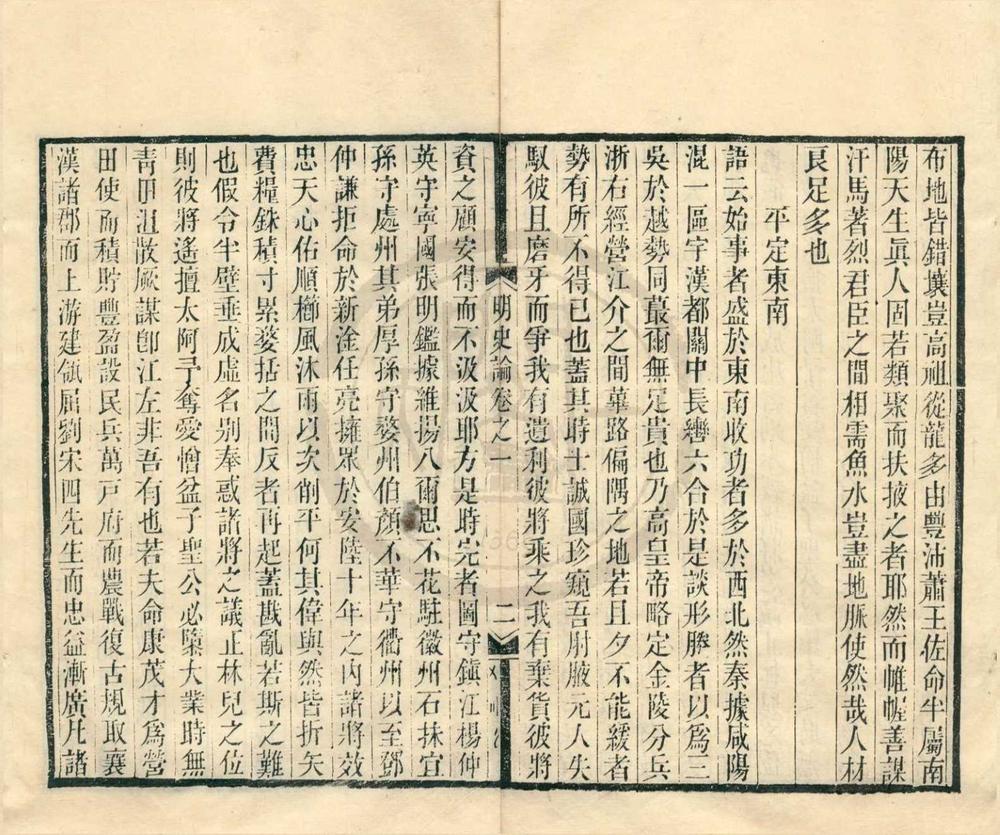 布地皆錯壤豈高祖從龍多由豐沛蕭王佐命半屬南
陽天生眞人固若類聚而扶掖之者耶然而帷幄善謀
汗馬著烈君臣之間相需魚水豈盡地脈使然哉人材
良足多也
平定東南
語云始事者盛於東南收功者多於西北然秦據咸陽
混一區宇漢都關中長轡六合於是談形勝者以爲三
吳於越勢同蕞爾無足貴也乃高皇帝略定金陵分兵
浙右經營江介之間蓽路偏隅之地若且夕不能緩者
勢有所不得已也蓋其時士誠國珍窺吾肘腋元人失
馭彼且磨牙而爭我有遺利彼將乘之我有棄貨彼將
明史論卷之一
二
資之顧安得而不汲汲耶方是時完者圖守鎭江楊仲
英守寧國張明鑑據維揚八爾思不花駐徽州石抹宜
孫守處州其弟厚孫守婺州伯顏不華守衢州以至鄧
仲謙拒命於新淦任亮擁眾於安陸十年之內諸將效
忠天心佑順櫛風沐雨以次削平何其偉與然皆折矢
費糧銖積寸累婺括之間反者再起蓋戡亂若斯之難
也假令半壁垂成虛名别奉惑諸將之議正林兒之位
則彼將遙擅太阿予奪愛憎盆子聖公必墮大業時無
靑田沮散厥謀卽江左非吾有也若夫命康茂才爲營
田使而積貯豐盈設民兵萬戸府而農戰復古規取襄
漢諸郡而上游建瓴屈劉宋四先生而忠益漸廣凡諸